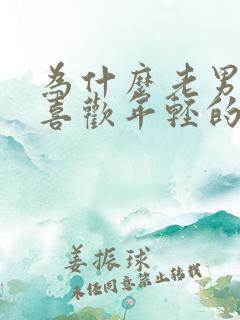 為什麼老男
喜歡年輕的
姜振球
未經同意禁止轉載